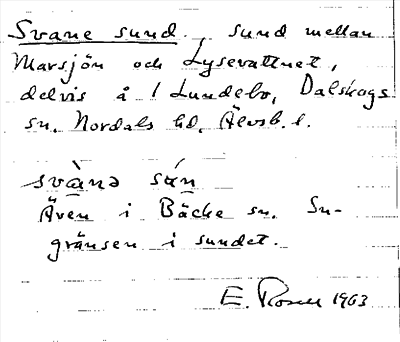 Svane sund, sund mellan
Marsjön och Lysevattnet,
delvis å 1 Lundebo, Dalskogs
sn. Nordals hd, Älvsb. l.
svànə sún
Även i Bäcke sn. Sn-
gränsen i sundet.
E. Rosell 1963